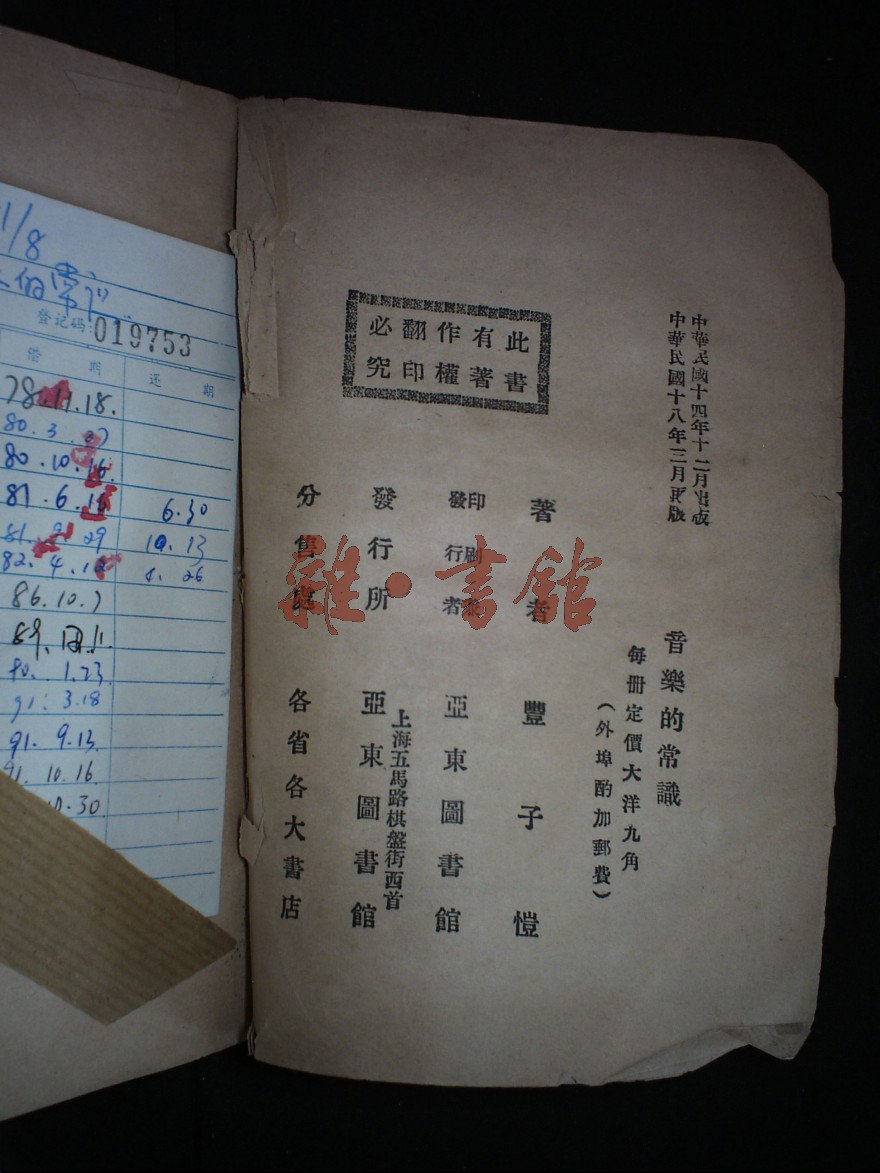 1/8
的常识
登记码:019753
借 期 还 期
78.11.18.
80.3.27
80.10.16.
81.6.16 6.30
81.9.29 10.13
82.4.12 4.26
86.10.7
90.1.23.
91.3.18
91.9.13.
91.10.16
10.30
中華民國十四年十二月出版
中華民國十八年三月再版
音樂的常識
每册定價大洋九角
(外埠酌加郵費)
此書
有著
作權
翻印
必究
著者 豐子愷
印刷兼發行者 亞東圖書館
上海五馬路棋盤街西首
發行所 亞東圖書館
分售處 各省各大書店
雜·書館